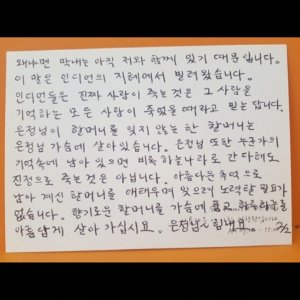 왜냐면 막내는 아직 저와 함께 있기 때문입니다.
이 말은 인디언의 지혜에서 빌려왔습니다.
인디언들은 진짜 사람이 죽는 것은 그 사람을
기억하는 모든 사람이 죽었을 때라고 믿는답니다.
은정님이 할머니를 잊지 않는 한 할머니는
은정님 가슴에 살아있습니다. 은정님 또한 누군가의
기억속에 남아 있으면 비록 하늘나라로 간다해도
진정으로 죽는 것은 아닙니다. 아름다운 추억으로
남아 계신 할머니를 애태우며 잊으려 노력할 필요가
없습니다. 향기로운 할머니를 가슴에 품고 하루하루를
아름답게 살아 가십시요. 은정님, 힘내요